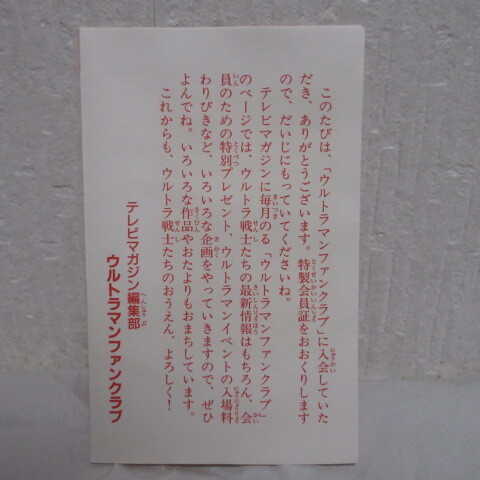 このたびは、「ウルトラマンファンクラブ」に入会していた
だき、ありがとうございます。特製会員証をおおくりします
ので、だいじにもっていてくださいね。
テレビマガジンに毎月のる「ウルトラマンファンクラブ」
のページでは、ウルトラ戦士たちの最新情報はもちろん、会
員のための特別プレゼント、ウルトラマンイベントの入場料
わりびきなど、いろいろな企画をやっていきますので、ぜひ
よんでね。いろいろな作品やおたよりもおまちしています。
これからも、ウルトラ戦士たちのおうえん、よろしく！
テレビマガジン編集部
ウルトラマンファンクラブ